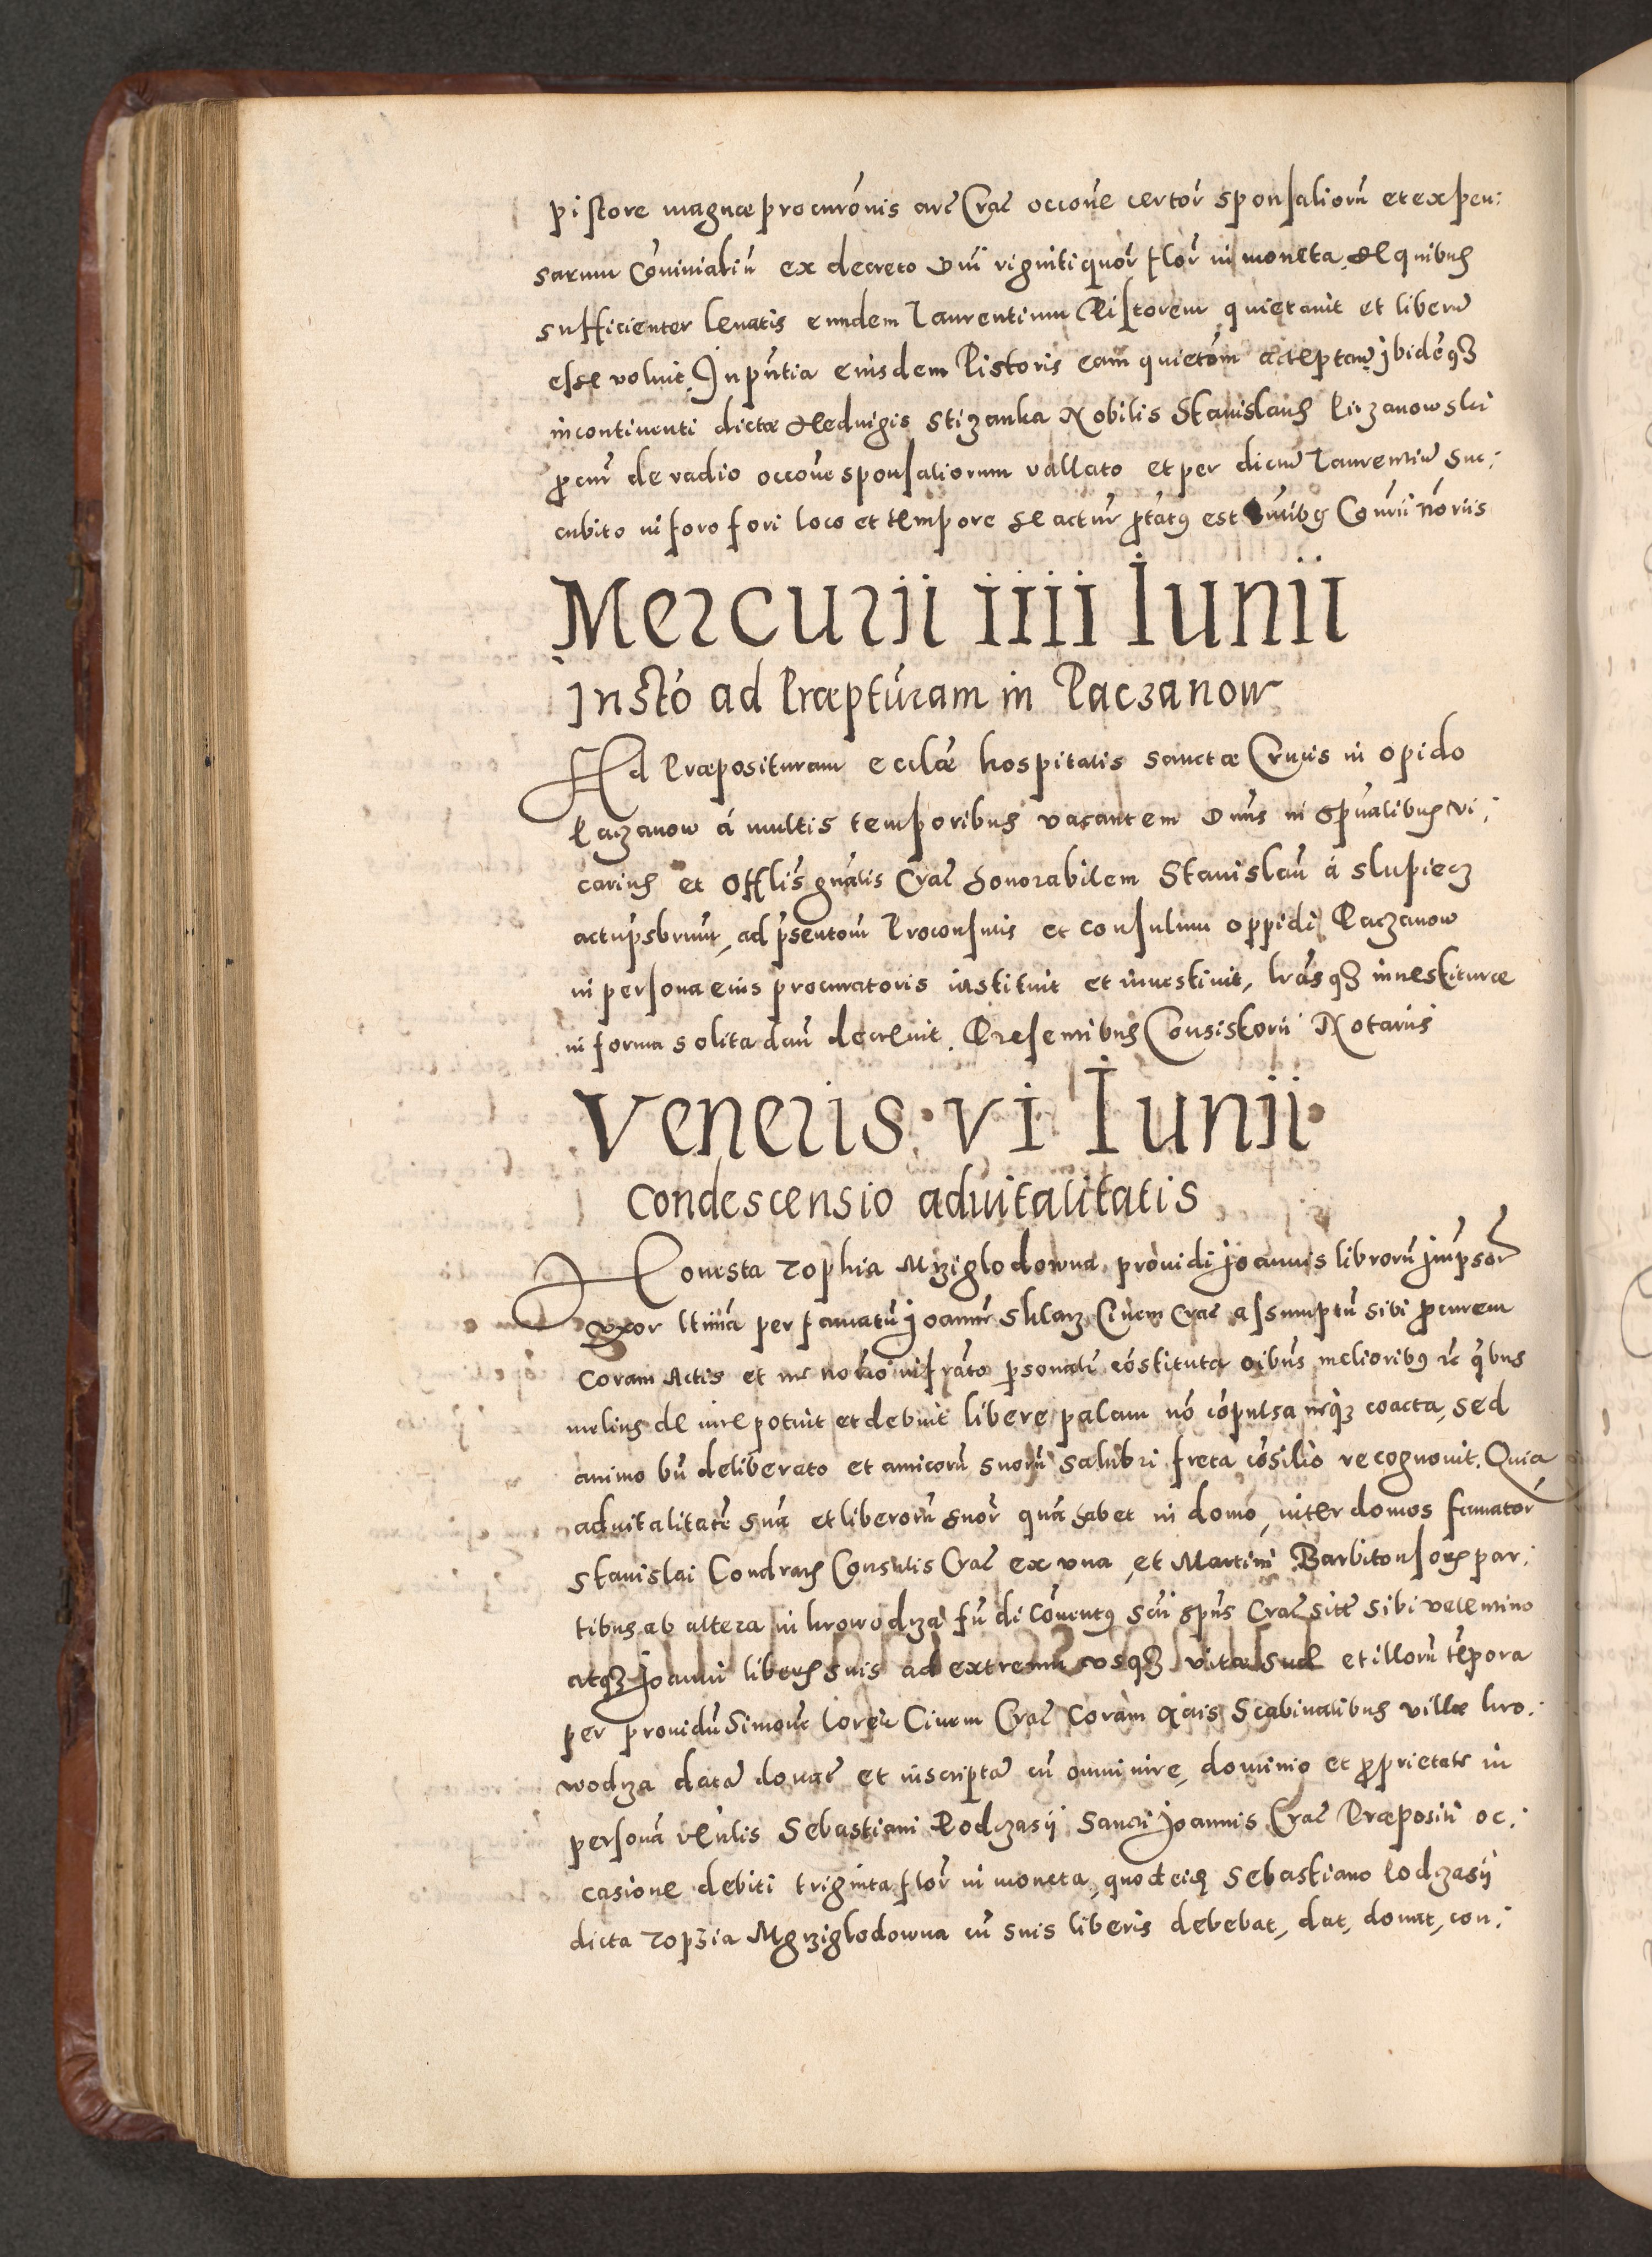 pistore magnæ procurõnis arč Crač occoñe certoř sponsalioru͂ et expen:
sarum Cõniuialiu͂ ex decreto Dñi vigintiquoř floř in moneta, de quibus
sufficienter leuatis eundem Laurentium Pistorem quietauit et liberu͂
esse voluit, In pñtia eiusdem Pistoris eam quietõm acceptan͂. Ibidẽq3
incontinenti dictæ Heduigis Stizanka Nobilis Stanislaus Pirzanowski
procur͂ de vadio occoñe sponsaliorum vallato et per dictu͂ Laurentiu͂ suc:
cubito in foro fori loco et tempore se actur͂ ptat9 est Cõrii nõriis
Mercurii iiii Iunii
Instõ ad Præptúram in Paczanow
Ad Præposituram ecclæ̃ hospitalis sanctæ Crucis in opido
Paczanow á multis temporibus vacantem Dñs in spũalibus vi:
carius et Offlis gñalis Crač honorabilem Stanislau͂ á Slupiecz
ad p̃sentom̃ Proconsulis et consulum oppidi Paczanow
in persona eius procuratoris instituit et inuestiuit, lrãsq3 inuestituræ
in forma solita dan͂ decreuit. Presentibus Consistorii Notariis
Veneris · vi · Iunii ·
Condescensio aduitalitatis
Honesta Zophia Mrziglodowna, prouidi Joannis libroru͂ Imp̃soř
vxor ltima̋ per famatu͂ Joann͂ Sklarz Ciuem Crač assumptu͂ sibi procurem
coram Actis et me noto̍ infrãto personalr͂ cõstituta oĩbus melioribus et q̃bus
melius de iure potuit et debuit libere palam nõ cõpulsa neq3 coacta, sed
animo bn͂ deliberato et amicoru͂ suoru͂ salubri freta cõsilio recognouit. Quia
aduitalitatẽ suã et liberoru͂ suoř quã habet in domo, inter domos famatoř
Stanislai Condrath Consulis Crač ex vna, et Martini Barbitonsoris par:
tibus ab altera in krowodrza fun͂di Cõuentus scti sp̃us Crač sitẽ sibi Valentino
atq3 Joanni liberis suis ad extrema vsq3 vitæ suæ et illoru͂ tẽpora
per prouidu͂ Simonẽ Ciuem Crač coram Actis Scabinalibus villæ kro:
wodrza data͂ donatã et inscripta͂ cu͂ omni iure, dominio et proprietate in
personã vẽnlis Sebastiani Podczasij Sancti Joannis Crač Præpositi oc:
casione debiti triginta floř in moneta, quod eid͂ Sebastiano Podczasij
dicta Zophia Mrziglodowna cu͂ suis liberis debebat, dat, donat, con: